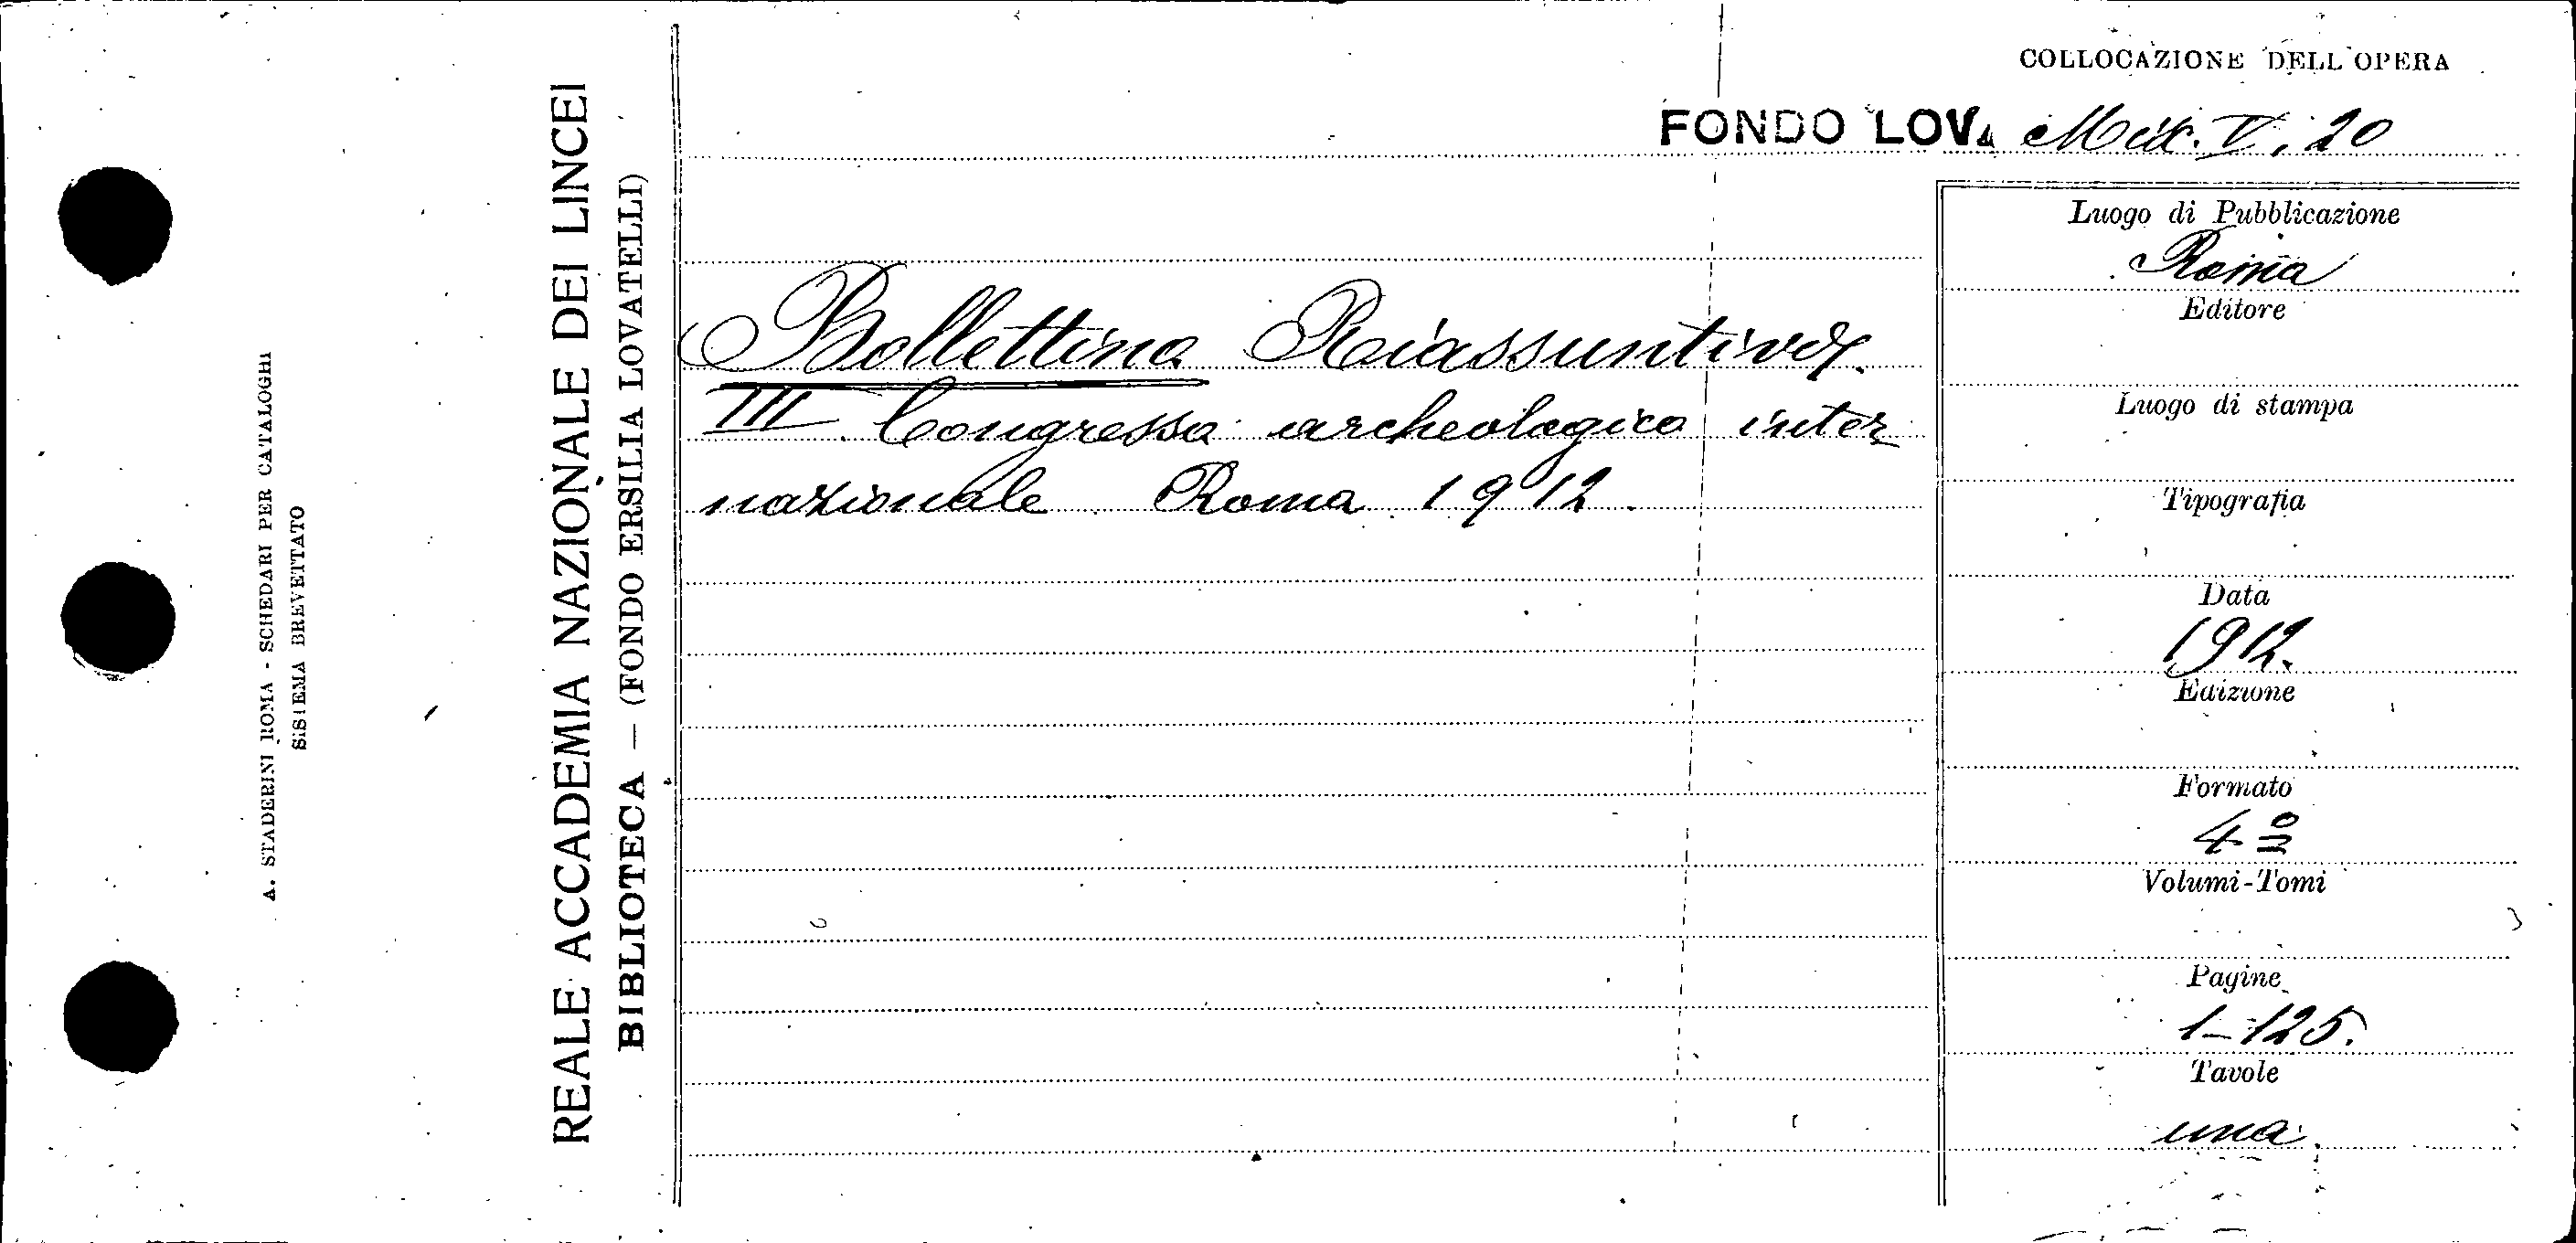 COLLOCAZIONE DELL'OPERA
FONDO LOV. Mix. V. 20
A. STADERINI ROMA - SCHEDARI PER CATALOGHI
SISTEMA BREVETTATO
REALE ACCADEMIA NAZIONALE DEI LINCEI
BIBLIOTECA — (FONDO ERSILIA LOVATELLI)
Bollettino Riassuntivo.
III Congresso archeologico inter
nazionale Roma 1912.
Luogo di Pubblicazione
Roma
Editore
Luogo di stampa
Tipografia
Data
1912.
Edizione
Formato
4º
Volumi-Tomi
Pagine
1-125.
Tavole
una.